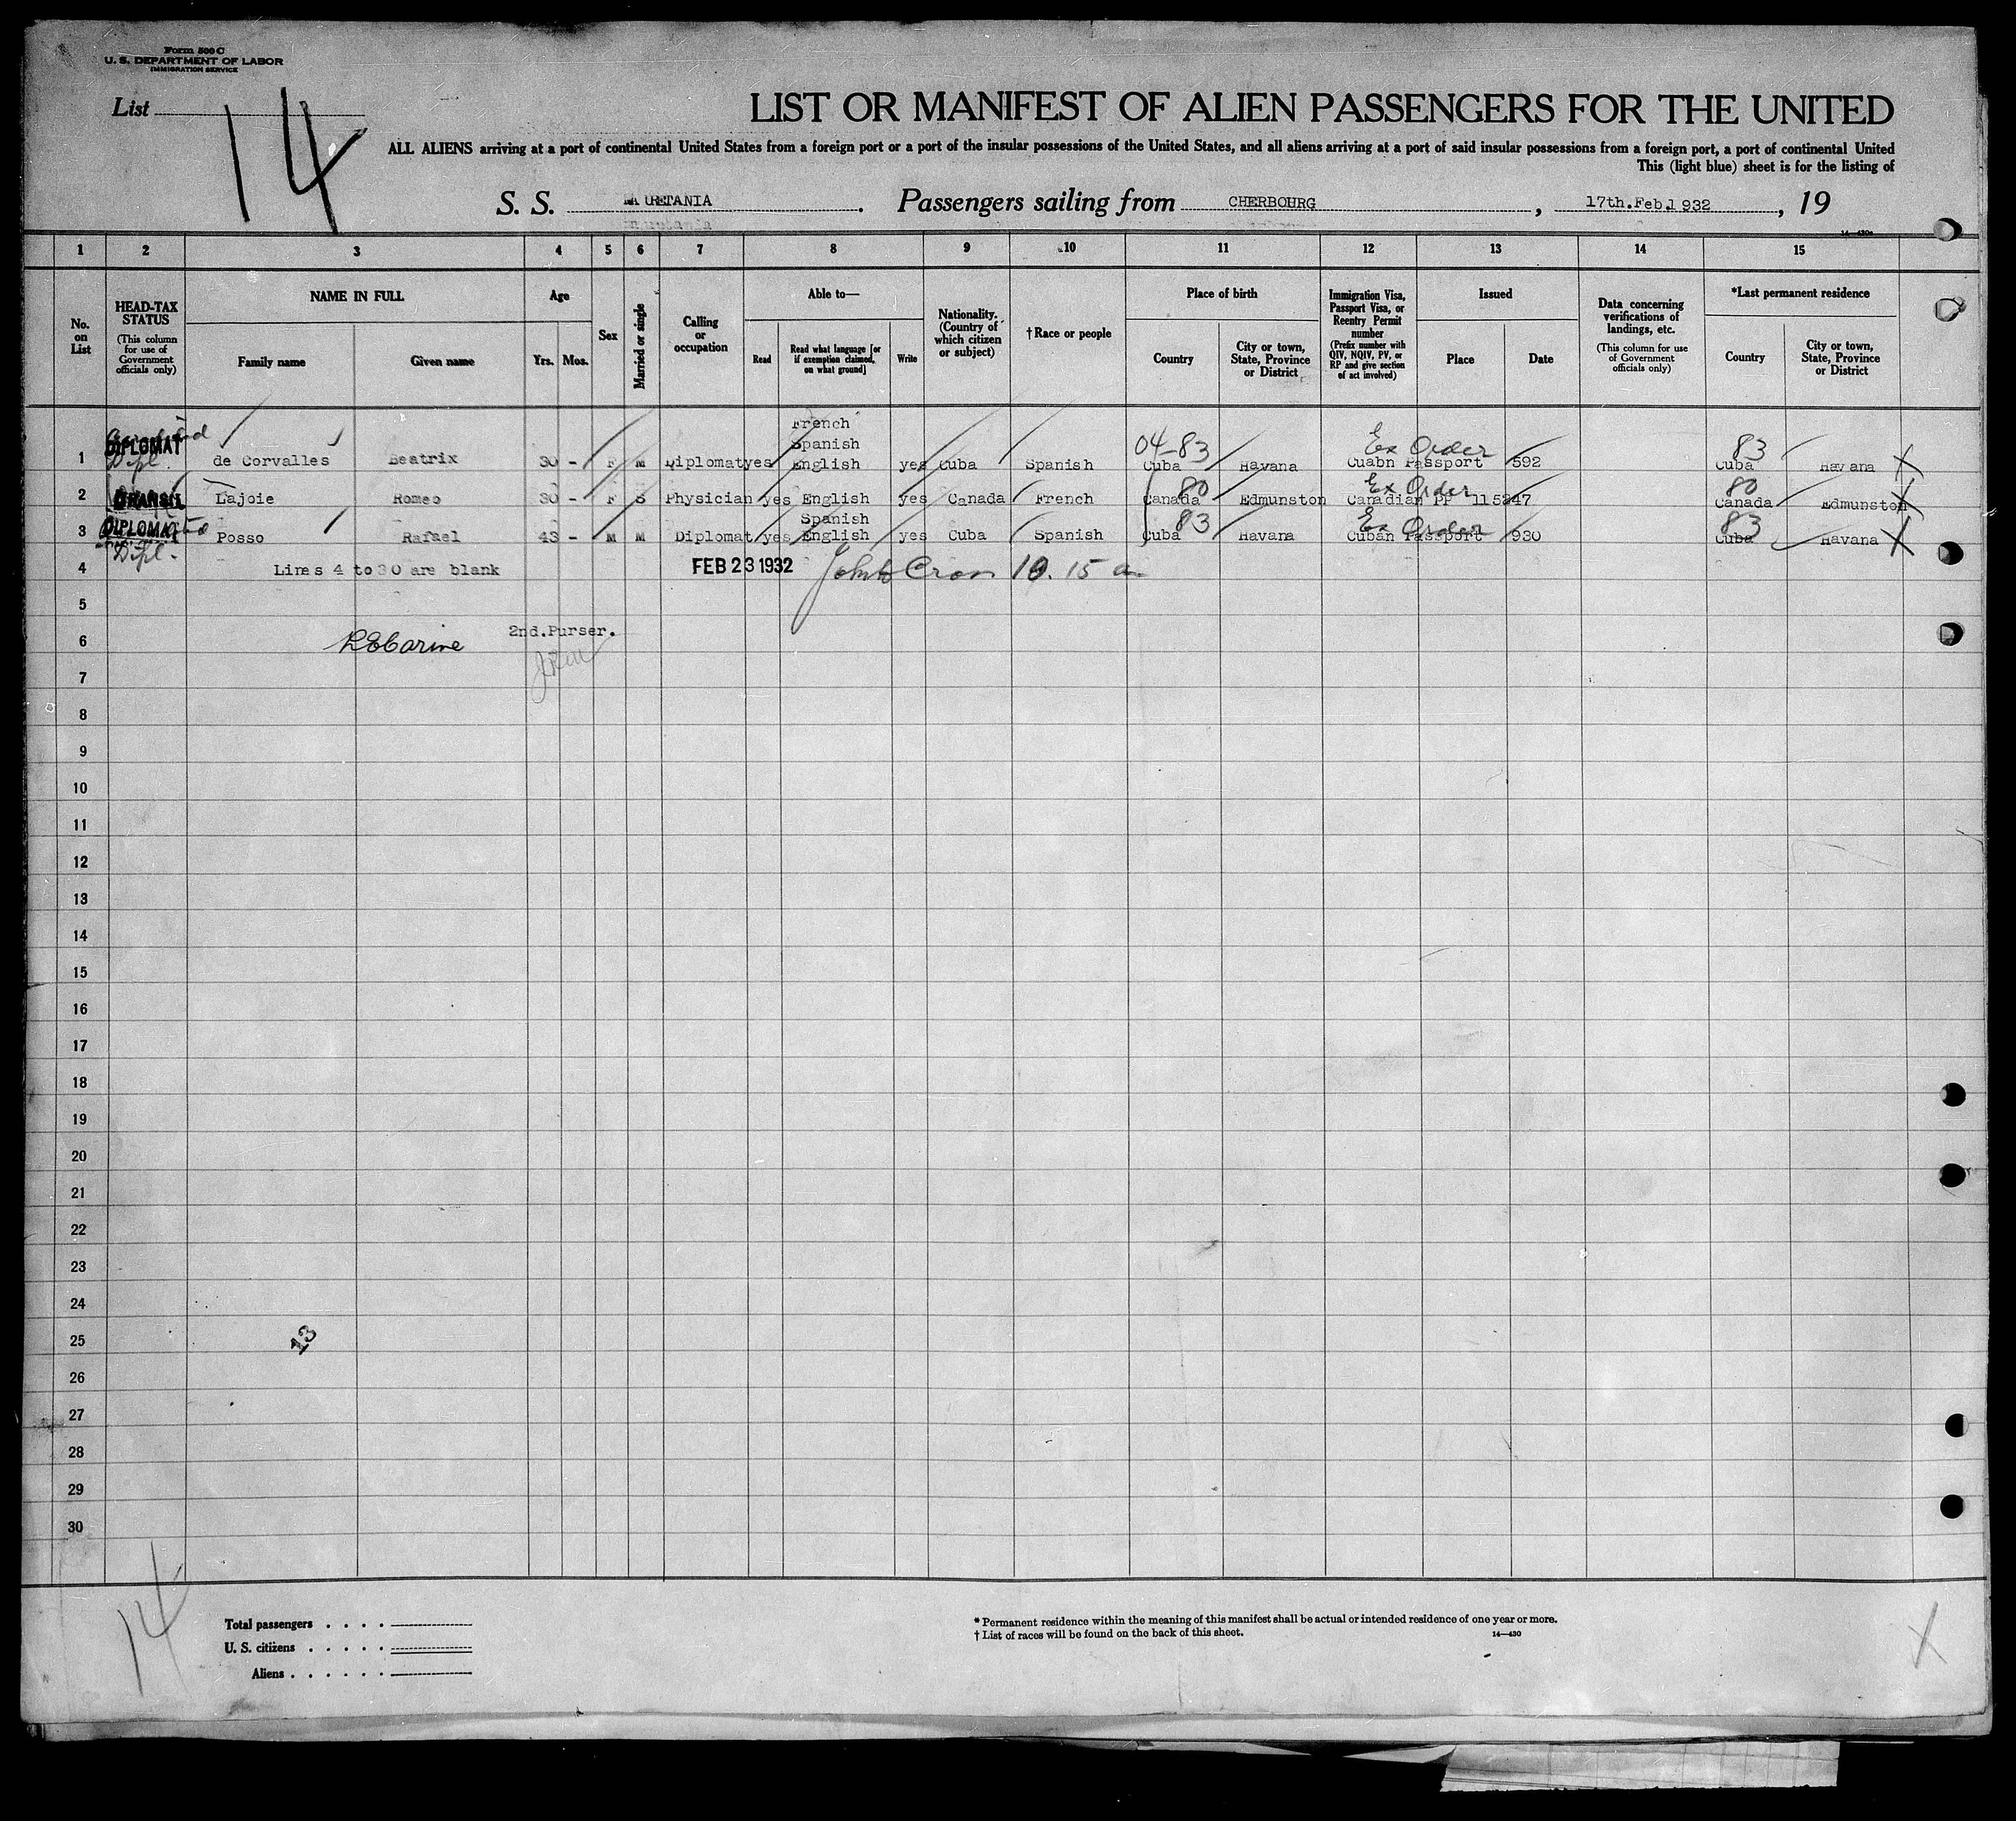 Form 500 C
U. S. DEPARTMENT OF LABOR
IMMIGRATION SERVICE
List
14
LIST OR MANIFEST OF ALIEN PASSENGERS FOR THE UNITED
ALL ALIENS arriving at a port of continental United States from a foreign port or a port of the insular possessions of the United States, and all aliens arriving at a port of said insular possessions from a foreign port, a port of continental United
This (light blue) sheet is for the listing of
S. S. MAURETANIA. Passengers sailing from CHERBOURG, 17th.Feb.1932, 19
1 2 3 4 5 6 7 8 9 10 11 12 13 14 15
No. on List
HEAD-TAX STATUS
(This column for use of Government officials only)
NAME IN FULL
Family name
Given name
Age
Yrs. Mos.
Sex
Married or single
Calling or occupation
Able to—
Read
Read what language [or if exemption claimed, on what ground]
Write
Nationality. (Country of which citizen or subject)
†Race or people
Place of birth
Country
City or town, State, Province or District
Immigration Visa, Passport Visa, or Reentry Permit number
(Prefix number with QIV, NQIV, PV, or RP and give section of act involved)
Issued
Place
Date
Data concerning verifications of landings, etc.
(This column for use of Government officials only)
*Last permanent residence
Country
City or town, State, Province or District
French
DIPLOMAT Spanish 04-83 Ex Order 83
1 Dipl. de Corvalles Beatrix 30 - F M Diplomat yes English yes Cuba Spanish Cuba Havana Cuabn Passport 592 Cuba Havana X
80 Ex Order 80
2 Lajoie Romeo 30 - F S Physician yes English yes Canada French Canada Edmunston Canadian PP 115247 Canada Edmunston X
DIPLOMAT Spanish 83 Ex Order 83
3 Dipl. Posso Rafael 43 - M M Diplomat yes English yes Cuba Spanish Cuba Havana Cuban Passport 930 Cuba Havana X
4 Lines 4 to 30 are blank FEB 23 1932 10.15 a
5
6 2nd.Purser.
7
8
9
10
11
12
13
14
15
16
17
18
19
20
21
22
23
24
25 13
26
27
28
29
30
14
Total passengers . . . .
U. S. citizens . . . . .
Aliens . . . . . .
* Permanent residence within the meaning of this manifest shall be actual or intended residence of one year or more.
† List of races will be found on the back of this sheet.
14—430
X